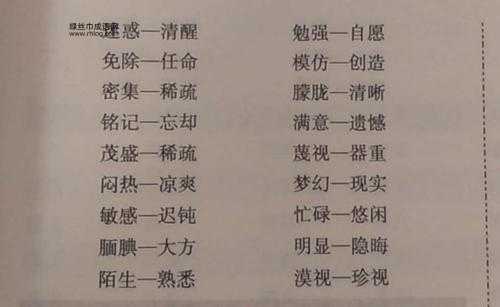 绿丝巾成语网
www.rhlog.com
迷惑—清醒 勉强—自愿
免除—任命 模仿—创造
密集—稀疏 朦胧—清晰
铭记—忘却 满意—遗憾
茂盛—稀疏 蔑视—器重
闷热—凉爽 梦幻—现实
敏感—迟钝 忙碌—悠闲
腼腆—大方 明显—隐晦
陌生—熟悉 漠视—珍视